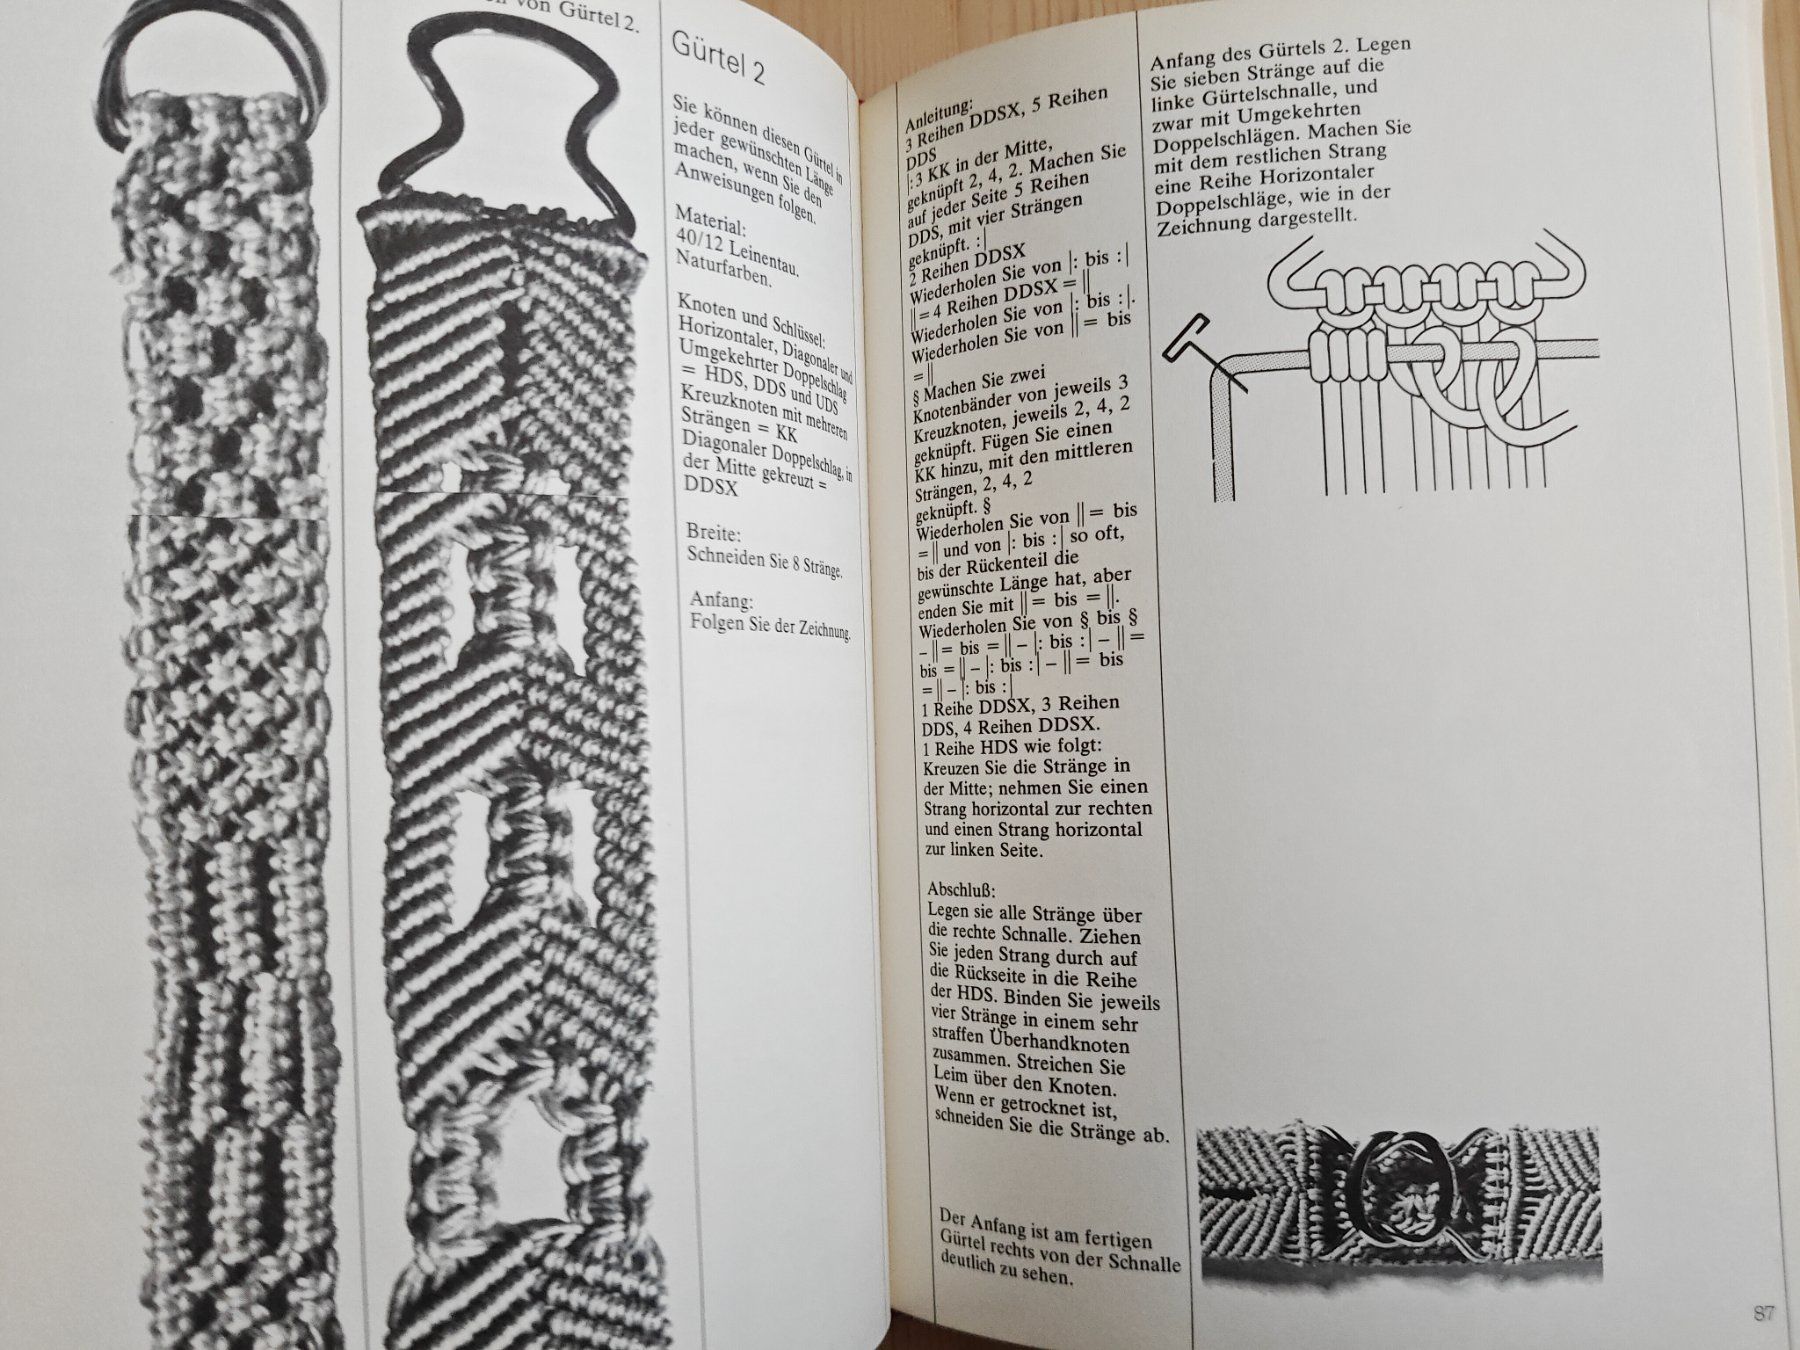 von Gürtel 2.
Gürtel 2
Sie können diesen Gürtel in
jeder gewünschten Länge
machen, wenn Sie den
Anweisungen folgen.
Material:
40/12 Leinentau.
Naturfarben.
Knoten und Schlüssel:
Horizontaler, Diagonaler und
Umgekehrter Doppelschlag
= HDS, DDS und UDS
Kreuzknoten mit mehreren
Strängen = KK
Diagonaler Doppelschlag, in
der Mitte gekreuzt =
DDSX
Breite:
Schneiden Sie 8 Stränge.
Anfang:
Folgen Sie der Zeichnung.
Anleitung:
3 Reihen DDSX, 5 Reihen
DDS
|: 3 KK in der Mitte,
geknüpft 2, 4, 2. Machen Sie
auf jeder Seite 5 Reihen
DDS, mit vier Strängen
geknüpft. :|
2 Reihen DDSX
Wiederholen Sie von |: bis :|
|| = 4 Reihen DDSX = ||
Wiederholen Sie von |: bis :|.
Wiederholen Sie von || = bis
= ||
§ Machen Sie zwei
Knotenbänder von jeweils 3
Kreuzknoten, jeweils 2, 4, 2
geknüpft. Fügen Sie einen
KK hinzu, mit den mittleren
Strängen, 2, 4, 2
geknüpft. §
Wiederholen Sie von || = bis
= || und von |: bis :| so oft,
bis der Rückenteil die
gewünschte Länge hat, aber
enden Sie mit || = bis = ||.
Wiederholen Sie von § bis §
– || = bis = || – |: bis :| – || =
bis = || – |: bis :| – || = bis
= || – |: bis :|
1 Reihe DDSX, 3 Reihen
DDS, 4 Reihen DDSX.
1 Reihe HDS wie folgt:
Kreuzen Sie die Stränge in
der Mitte; nehmen Sie einen
Strang horizontal zur rechten
und einen Strang horizontal
zur linken Seite.
Abschluß:
Legen sie alle Stränge über
die rechte Schnalle. Ziehen
Sie jeden Strang durch auf
die Rückseite in die Reihe
der HDS. Binden Sie jeweils
vier Stränge in einem sehr
straffen Überhandknoten
zusammen. Streichen Sie
Leim über den Knoten.
Wenn er getrocknet ist,
schneiden Sie die Stränge ab.
Der Anfang ist am fertigen
Gürtel rechts von der Schnalle
deutlich zu sehen.
Anfang des Gürtels 2. Legen
Sie sieben Stränge auf die
linke Gürtelschnalle, und
zwar mit Umgekehrten
Doppelschlägen. Machen Sie
mit dem restlichen Strang
eine Reihe Horizontaler
Doppelschläge, wie in der
Zeichnung dargestellt.
87